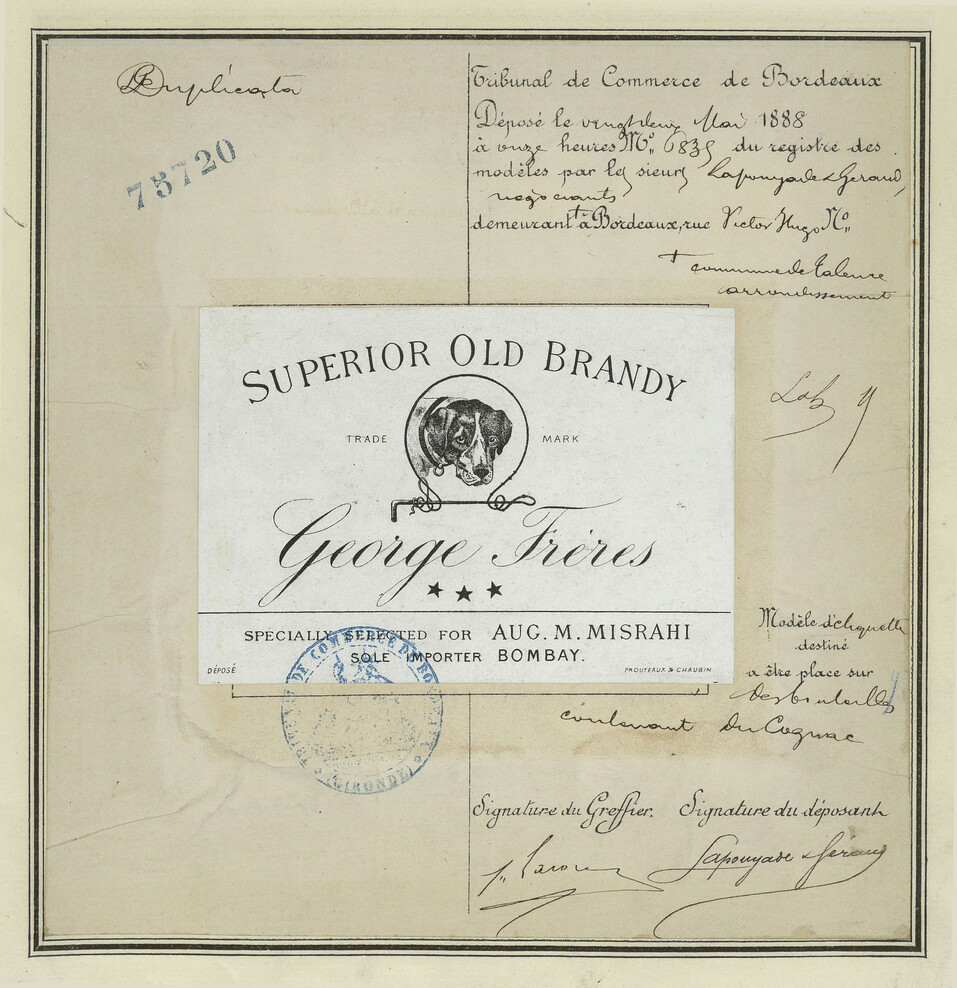 Duplicata
75720
Tribunal de Commerce de Bordeaux
Déposé le vingt deux Mai 1888
à onze heures Mº,, 6835 du registre des
modèles par les sieurs Lapouyade & Geraud,
négociants
demeurant + à Bordeaux, rue Victor Hugo Nº,,
+ commune de Talence
arrondissement
SUPERIOR OLD BRANDY
TRADE MARK
George Frères
SPECIALLY SELECTED FOR AUG. M. MISRAHI
SOLE IMPORTER BOMBAY.
DÉPOSÉ
PROUTEAUX & CHAUBIN
TRIBUNAL DE COMMERCE DE BORDEAUX
(GIRONDE)
Modèle d'étiquette
destiné
a être place sur
des bouteilles
contenant du Cognac
Signature du Greffier. Signature du déposant
Lapouyade & Géraud